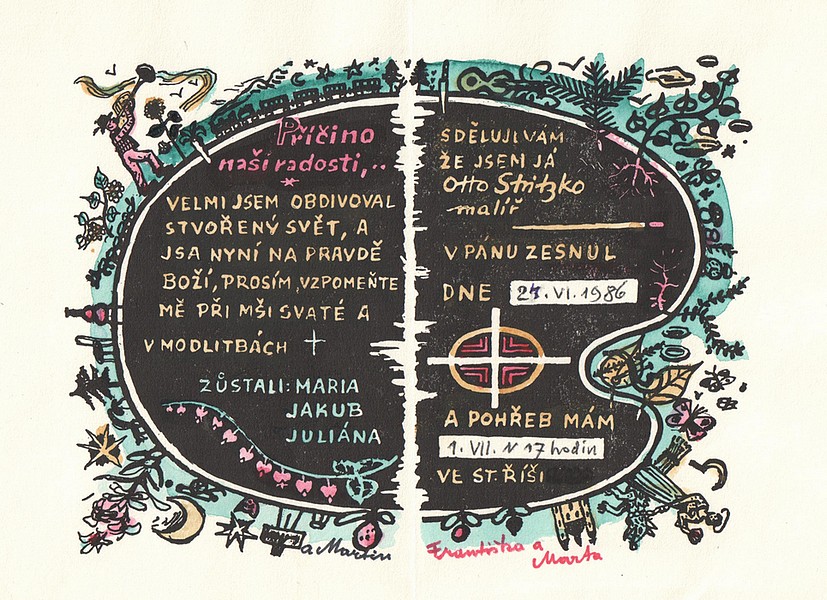 Příčino
naší radosti,..
VELMI JSEM OBDIVOVAL
STVOŘENÝ SVĚT, A
JSA NYNÍ NA PRAVDĚ
BOŽÍ, PROSÍM, VZPOMEŇTE
MĚ PŘI MŠI SVATÉ A
V MODLITBÁCH
ZŮSTALI: MARIA
JAKUB
JULIÁNA
a Martin
SDĚLUJI VÁM
ŽE JSEM JÁ
Otto Stritzko
malíř
V PÁNU ZESNUL
DNE 27.VI.1986
A POHŘEB MÁM
1. VII. V 17 hodin
VE ST. ŘÍŠI
Františka a
Marta